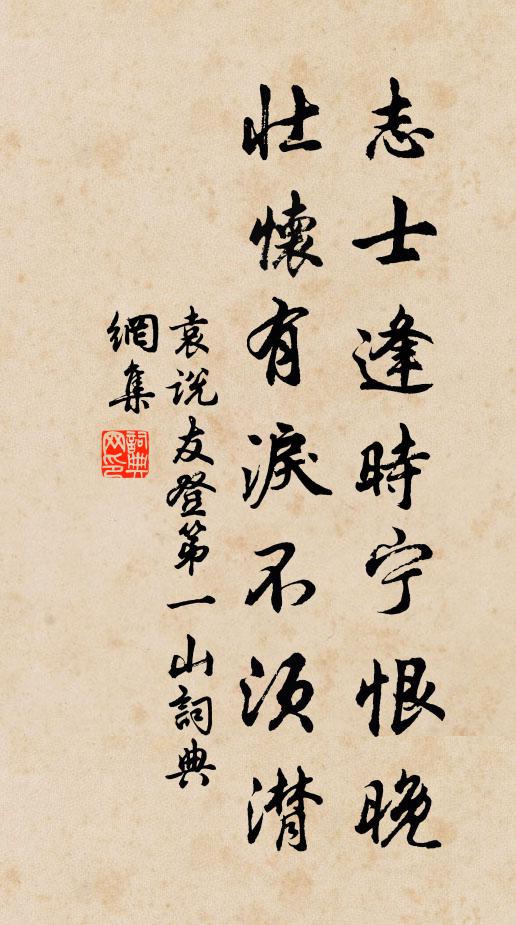 志士逢時宁恨晚
壯懷有淚不須潸
袁说友登第一山詞典
網集
詞典
网印